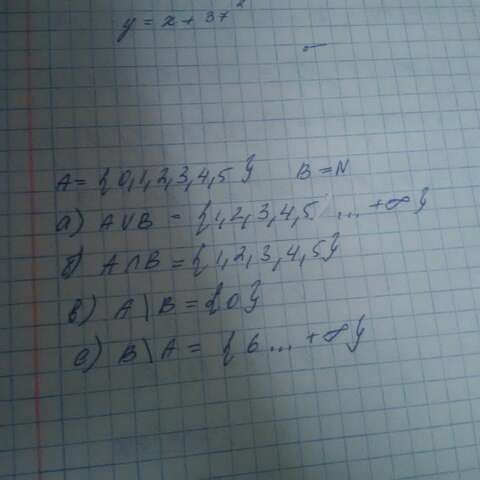 y = x + 37
A = { 0,1,2,3,4,5 } B = N
а) A ∪ B = { 1,2,3,4,5 ... +∞ }
б) A ∩ B = { 1,2,3,4,5 }
в) A \ B = { 0 }
е) B \ A = { 6 ... +∞ }